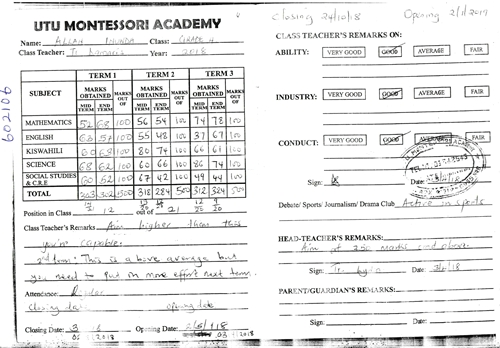 UTU MONTESSORI ACADEMY
Name: ALLAN Class: GRADE 4
Class Teacher: Tr. Year: 2018
SUBJECT TERM 1 TERM 2 TERM 3
MARKS OBTAINED MARKS OUT OF MARKS OBTAINED MARKS OUT OF MARKS OBTAINED MARKS OUT OF
MID TERM END TERM MID TERM END TERM MID TERM END TERM
MATHEMATICS 52 68 100 56 54 100 74 78 100
ENGLISH 63 57 100 55 48 100 37 67 100
KISWAHILI 60 63 100 80 74 100 66 61 100
SCIENCE 68 62 100 60 66 100 86 74 100
SOCIAL STUDIES & C.R.E 60 52 100 67 42 100 49 44 100
TOTAL 303 302 500 318 284 500 312 324 500
Position in Class 12 out of 21
Class Teacher's Remarks Aim higher than this
you're capable.
2nd term: This is above average but
you need to put in more effort next term.
Attendance: Regular
closing date opening date
Closing Date: 3 2018 Opening Date: 2018
602106
Closing 24/10/18 Opening 2/1/2019
CLASS TEACHER'S REMARKS ON:
ABILITY: VERY GOOD GOOD AVERAGE FAIR
INDUSTRY: VERY GOOD GOOD AVERAGE FAIR
CONDUCT: VERY GOOD GOOD AVERAGE FAIR
Sign: Date:
Debate/ Sports/ Journalism/ Drama Club Active in sports
HEAD-TEACHER'S REMARKS:
Aim at 350 marks and above.
Sign: Date: 3/8/18
PARENT/GUARDIAN'S REMARKS:
Sign: Date: